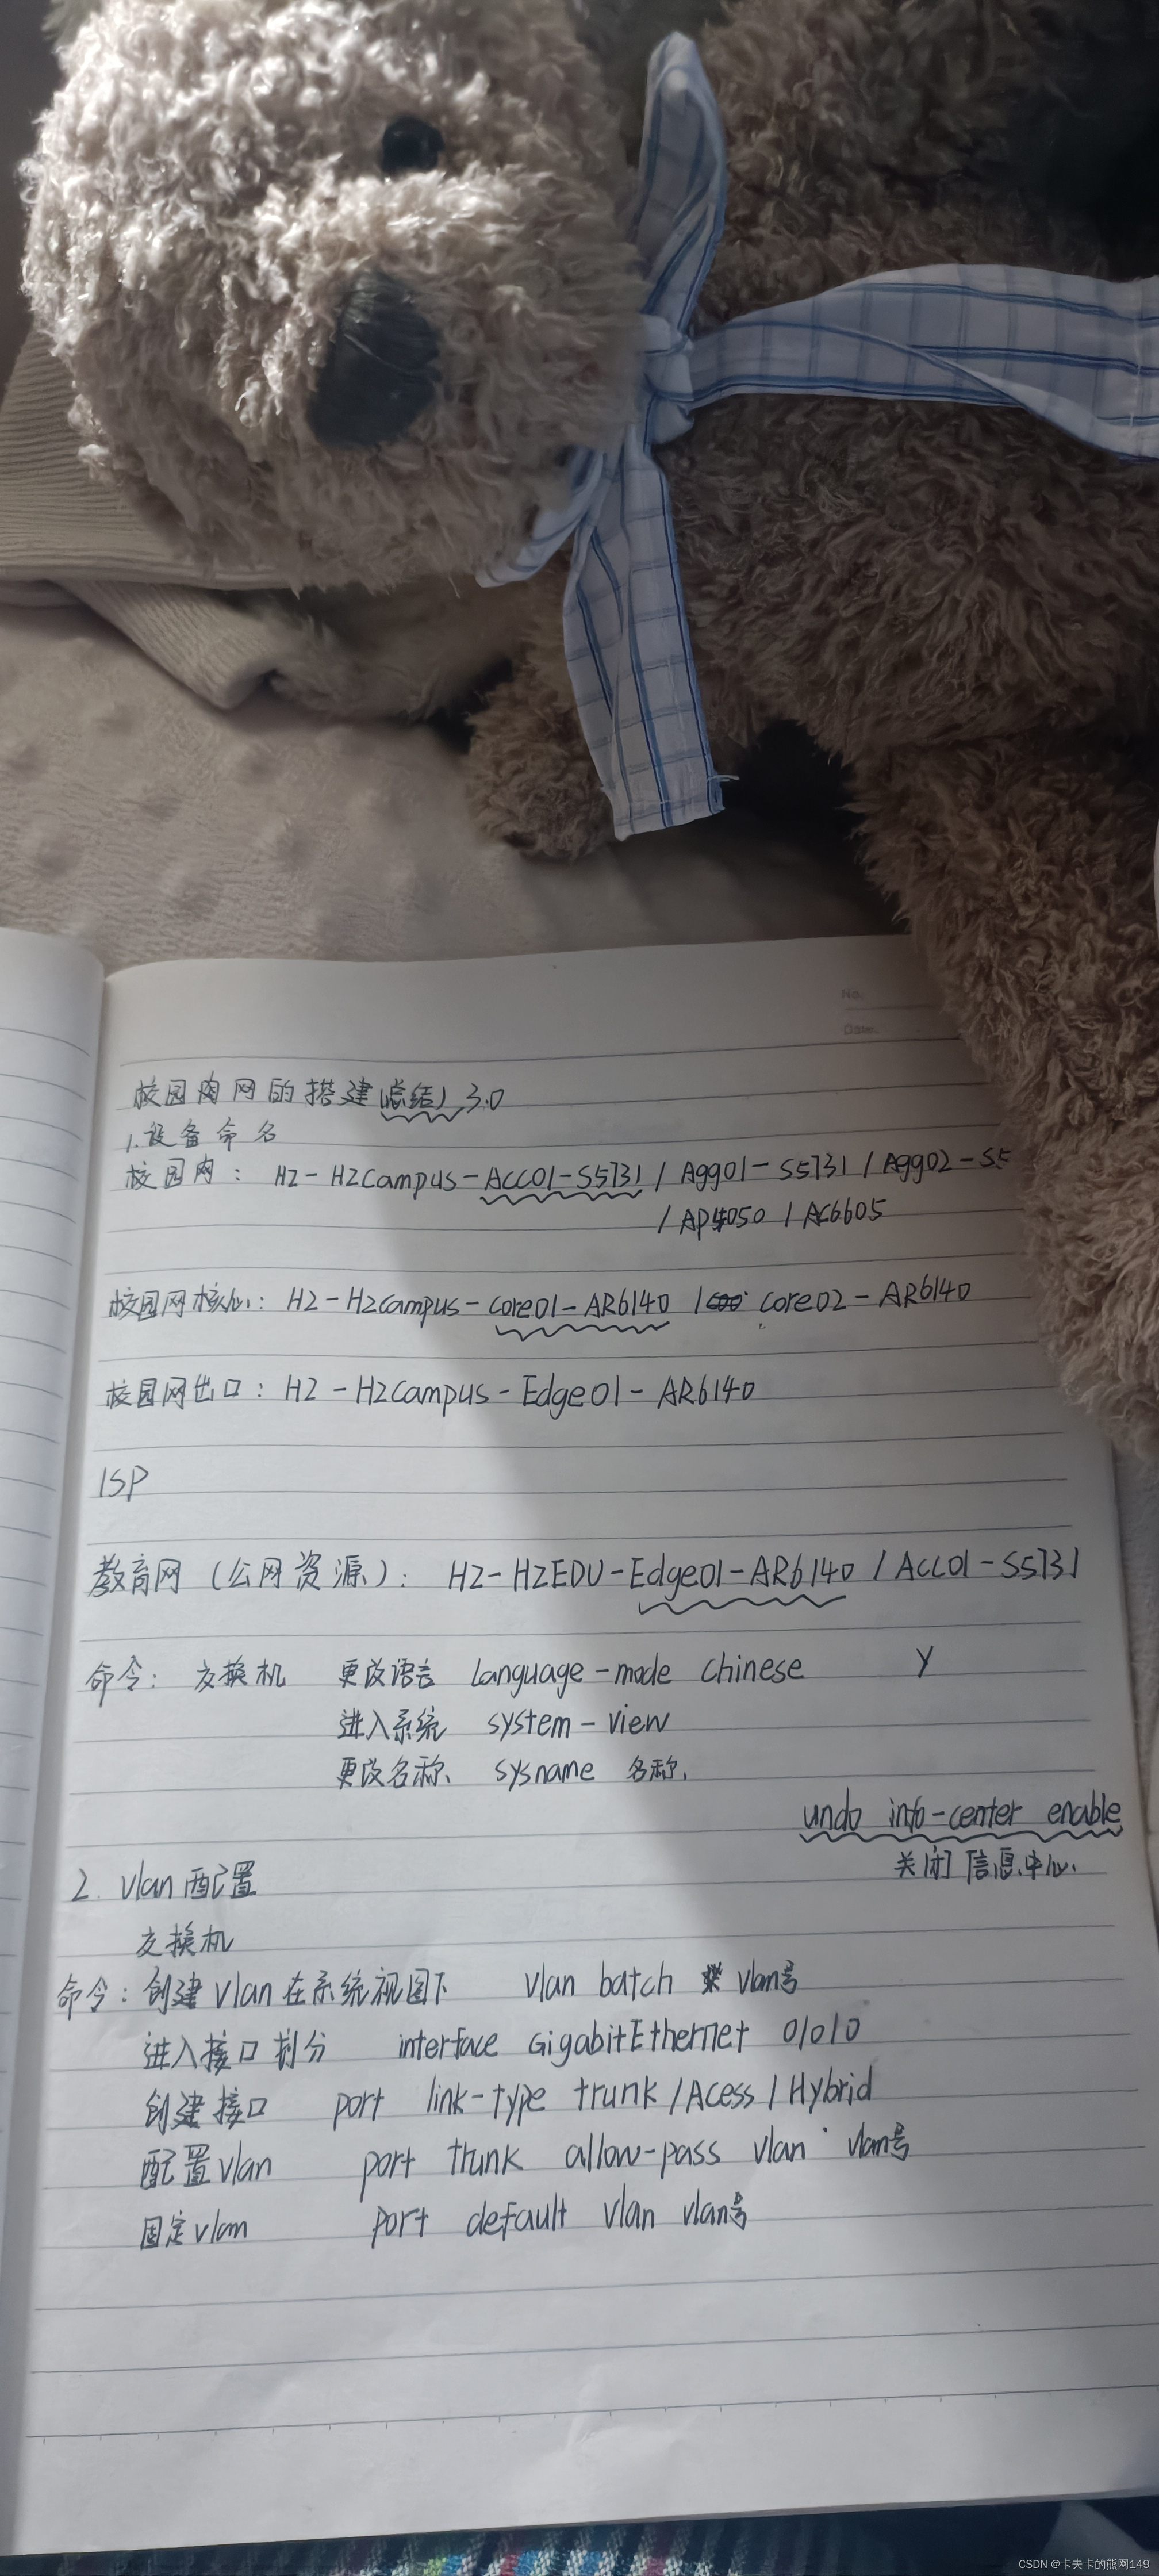 No.
Date.
校园内网的搭建(总结)3.0
1.设备命名
校园网: HZ-HZCampus-Acc01-S5731 / Agg01-S5731 / Agg02-S5
/ AP4050 / AC6605
校园网核心: HZ-HZcampus-core01-AR6140 / core02-AR6140
校园网出口: HZ-HZcampus-Edge01-AR6140
ISP
教育网(公网资源): HZ-HZEDU-Edge01-AR6140 / Acc01-S5731
命令: 交换机 更改语言 language-mode Chinese Y
进入系统 system-view
更改名称、 sysname 名称.
undo info-center enable
关闭信息中心.
2. vlan配置
交换机
命令:创建vlan在系统视图下 vlan batch vlan号
进入接口划分 interface GigabitEthernet 0/0/0
创建接口 port link-type trunk/Acess/Hybrid
配置vlan port trunk allow-pass vlan vlan号
固定vlan port default vlan vlan号
CSDN @卡夫卡的熊网149